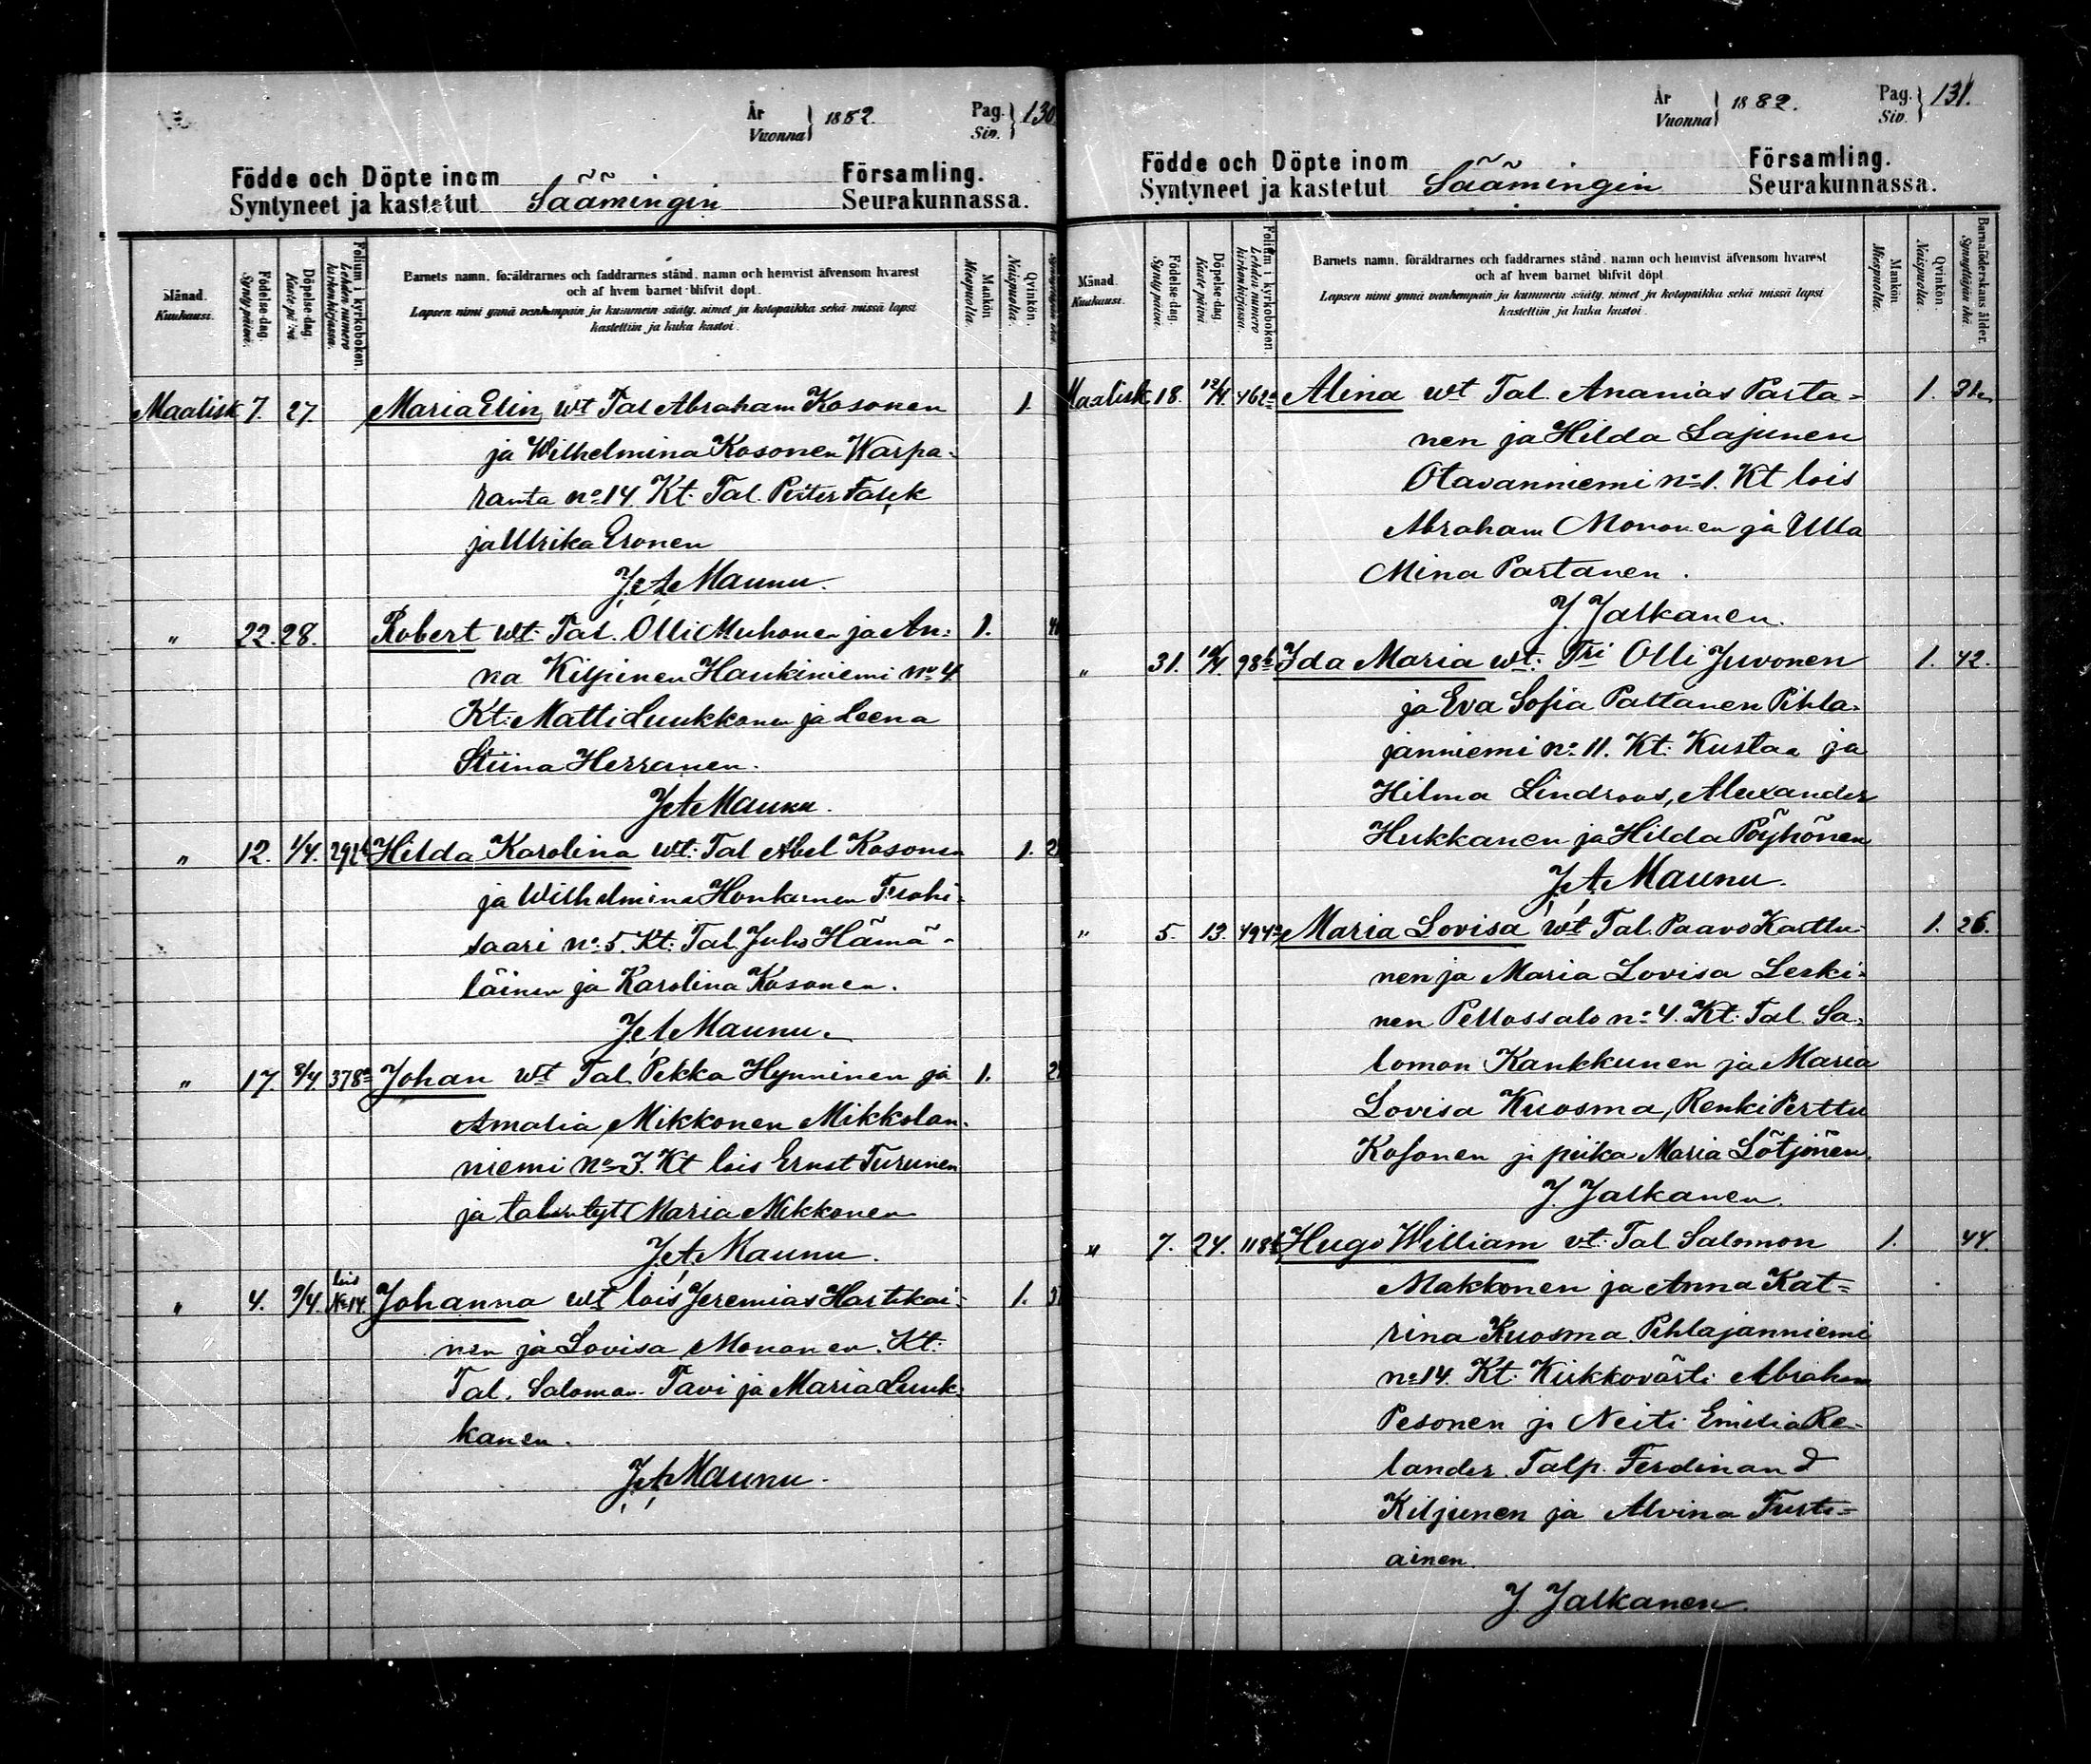 År
Vuonna } 1882.
Pag.
Siv. } 130
Födde och Döpte inom
Syntyneet ja kastetut Säämingin
Församling.
Seurakunnassa.
Månad. Kuukausi.
Födelse-dag. Synty päivä.
Döpelse-dag. Kaste päivä
Folium i kyrkoboken. Lehden numero kirkonkirjassa.
Barnets namn, föräldrarnes och faddrarnes stånd, namn och hemvist äfvensom hvarest
och af hvem barnet blifvit döpt.
Lapsen nimi ynnä vanhempain ja kummein sääty, nimet ja kotopaikka sekä missä lapsi
kastettiin ja kuka kastoi.
Mankön Miespuolia.
Qvinkön. Naispuolia.
Maalisk 7. 27. Maria Elin, wt Tal Abraham Kosonen 1.
ja Wilhelmina Kosonen Warpa-
ranta no 14. Kt: Tal. Peiter Falck
ja Ulrika Eronen
J. A. Maunu.
" 22. 28. Robert wt: Tal. Olli Muhonen ja An- 1.
na Kilpinen Haukiniemi no 4
Kt: Matti Luukkonen ja Leena
Stiina Herranen.
J A Maunu.
" 12. 1/4. 292 Hilda Karolina wt: Tal Abel Kosonen 1.
ja Wilhelmina Honkanen Tuohi-
saari no 5. Kt: Tal. Juho Hämä-
läinen ja Karolina Kosonen.
J A Maunu.
" 17. 8/4 378a Johan wt Tal. Pekka Hynninen ja 1.
Amalia Mikkonen Mikkolan-
niemi no 3. Kt lois Ernst Turunen
ja talon tytt Maria Mikkonen
J A. Maunu.
" 4. 9/4 lois No 14. Johanna wt lois Jeremias Hartikai- 1.
nen ja Lovisa Mononen. Kt:
Tal. Salomon Tavi ja Maria Luuk-
kanen.
J. A. Maunu.
År
Vuonna } 1882.
Pag.
Siv. } 131.
Födde och Döpte inom
Syntyneet ja kastetut Säämingin
Församling.
Seurakunnassa.
Månad. Kuukausi.
Födelse-dag. Synty päivä.
Döpelse-dag. Kaste päivä.
Folium i kyrkoboken. Lehden numero kirkonkirjassa.
Barnets namn, föräldrarnes och faddrarnes stånd, namn och hemvist äfvensom hvarest
och af hvem barnet blifvit döpt.
Lapsen nimi ynnä vanhempain ja kummein sääty, nimet ja kotopaikka sekä missä lapsi
kastettiin ja kuka kastoi.
Mankön Miespuolia.
Qvinkön. Naispuolia.
Barnaföderskans ålder. Synnyttäjän ikä.
Maalisk 18. 12/4 462a Alina wt Tal. Ananias Parta-  1.
nen ja Hilda Lajunen
Otavanniemi no 1. Kt lois
Abraham Mononen ja Ulla
Mina Partanen.
J. Jalkanen.
" 31. 98b Ida Maria wt: Tri Olli Juvonen 1. 42.
ja Eva Sofia Paltanen Pihla-
janniemi no 11. Kt: Kustaa ja
Hilma Lindroos, Alexander
Hukkanen ja Hilda Pöyhönen
J. A. Maunu.
" 5. 13. 494a Maria Lovisa wt Tal. Paavo Karttu- 1. 26.
nen ja Maria Lovisa Leski-
nen Pellossalo no 4. Kt: Tal. Sa-
lomon Kankkunen ja Maria
Lovisa Kuosma, Renki Perttu
Kosonen ja piika Maria Lötjönen.
J. Jalkanen.
" 7. 24. 118b Hugo William vt: Tal Salomon 1. 44.
Makkonen ja Anna Kat-
rina Kuosma Pihlajanniemi
no 14. Kt: Kirkkovärti Abraham
Pesonen ja Neiti Emilia Re-
lander. Talp. Ferdinand
Kiljunen ja Alvina Tusti-
ainen.
J. Jalkanen.